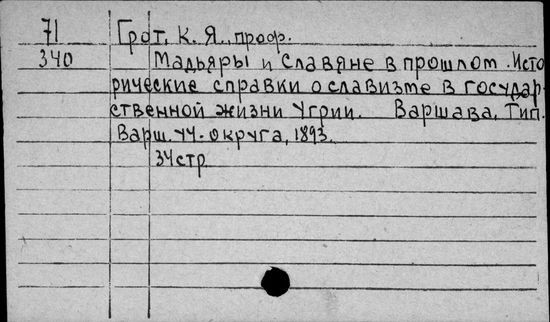 71 Грот, К. Я., проф.
340 Мадьяры и Славяне в прошлом. Исто
рические справки о славизме в государ-
ственной жизни Угрии. Варшава, Тип.
Варш. уч. округа, 1893.
34 стр.